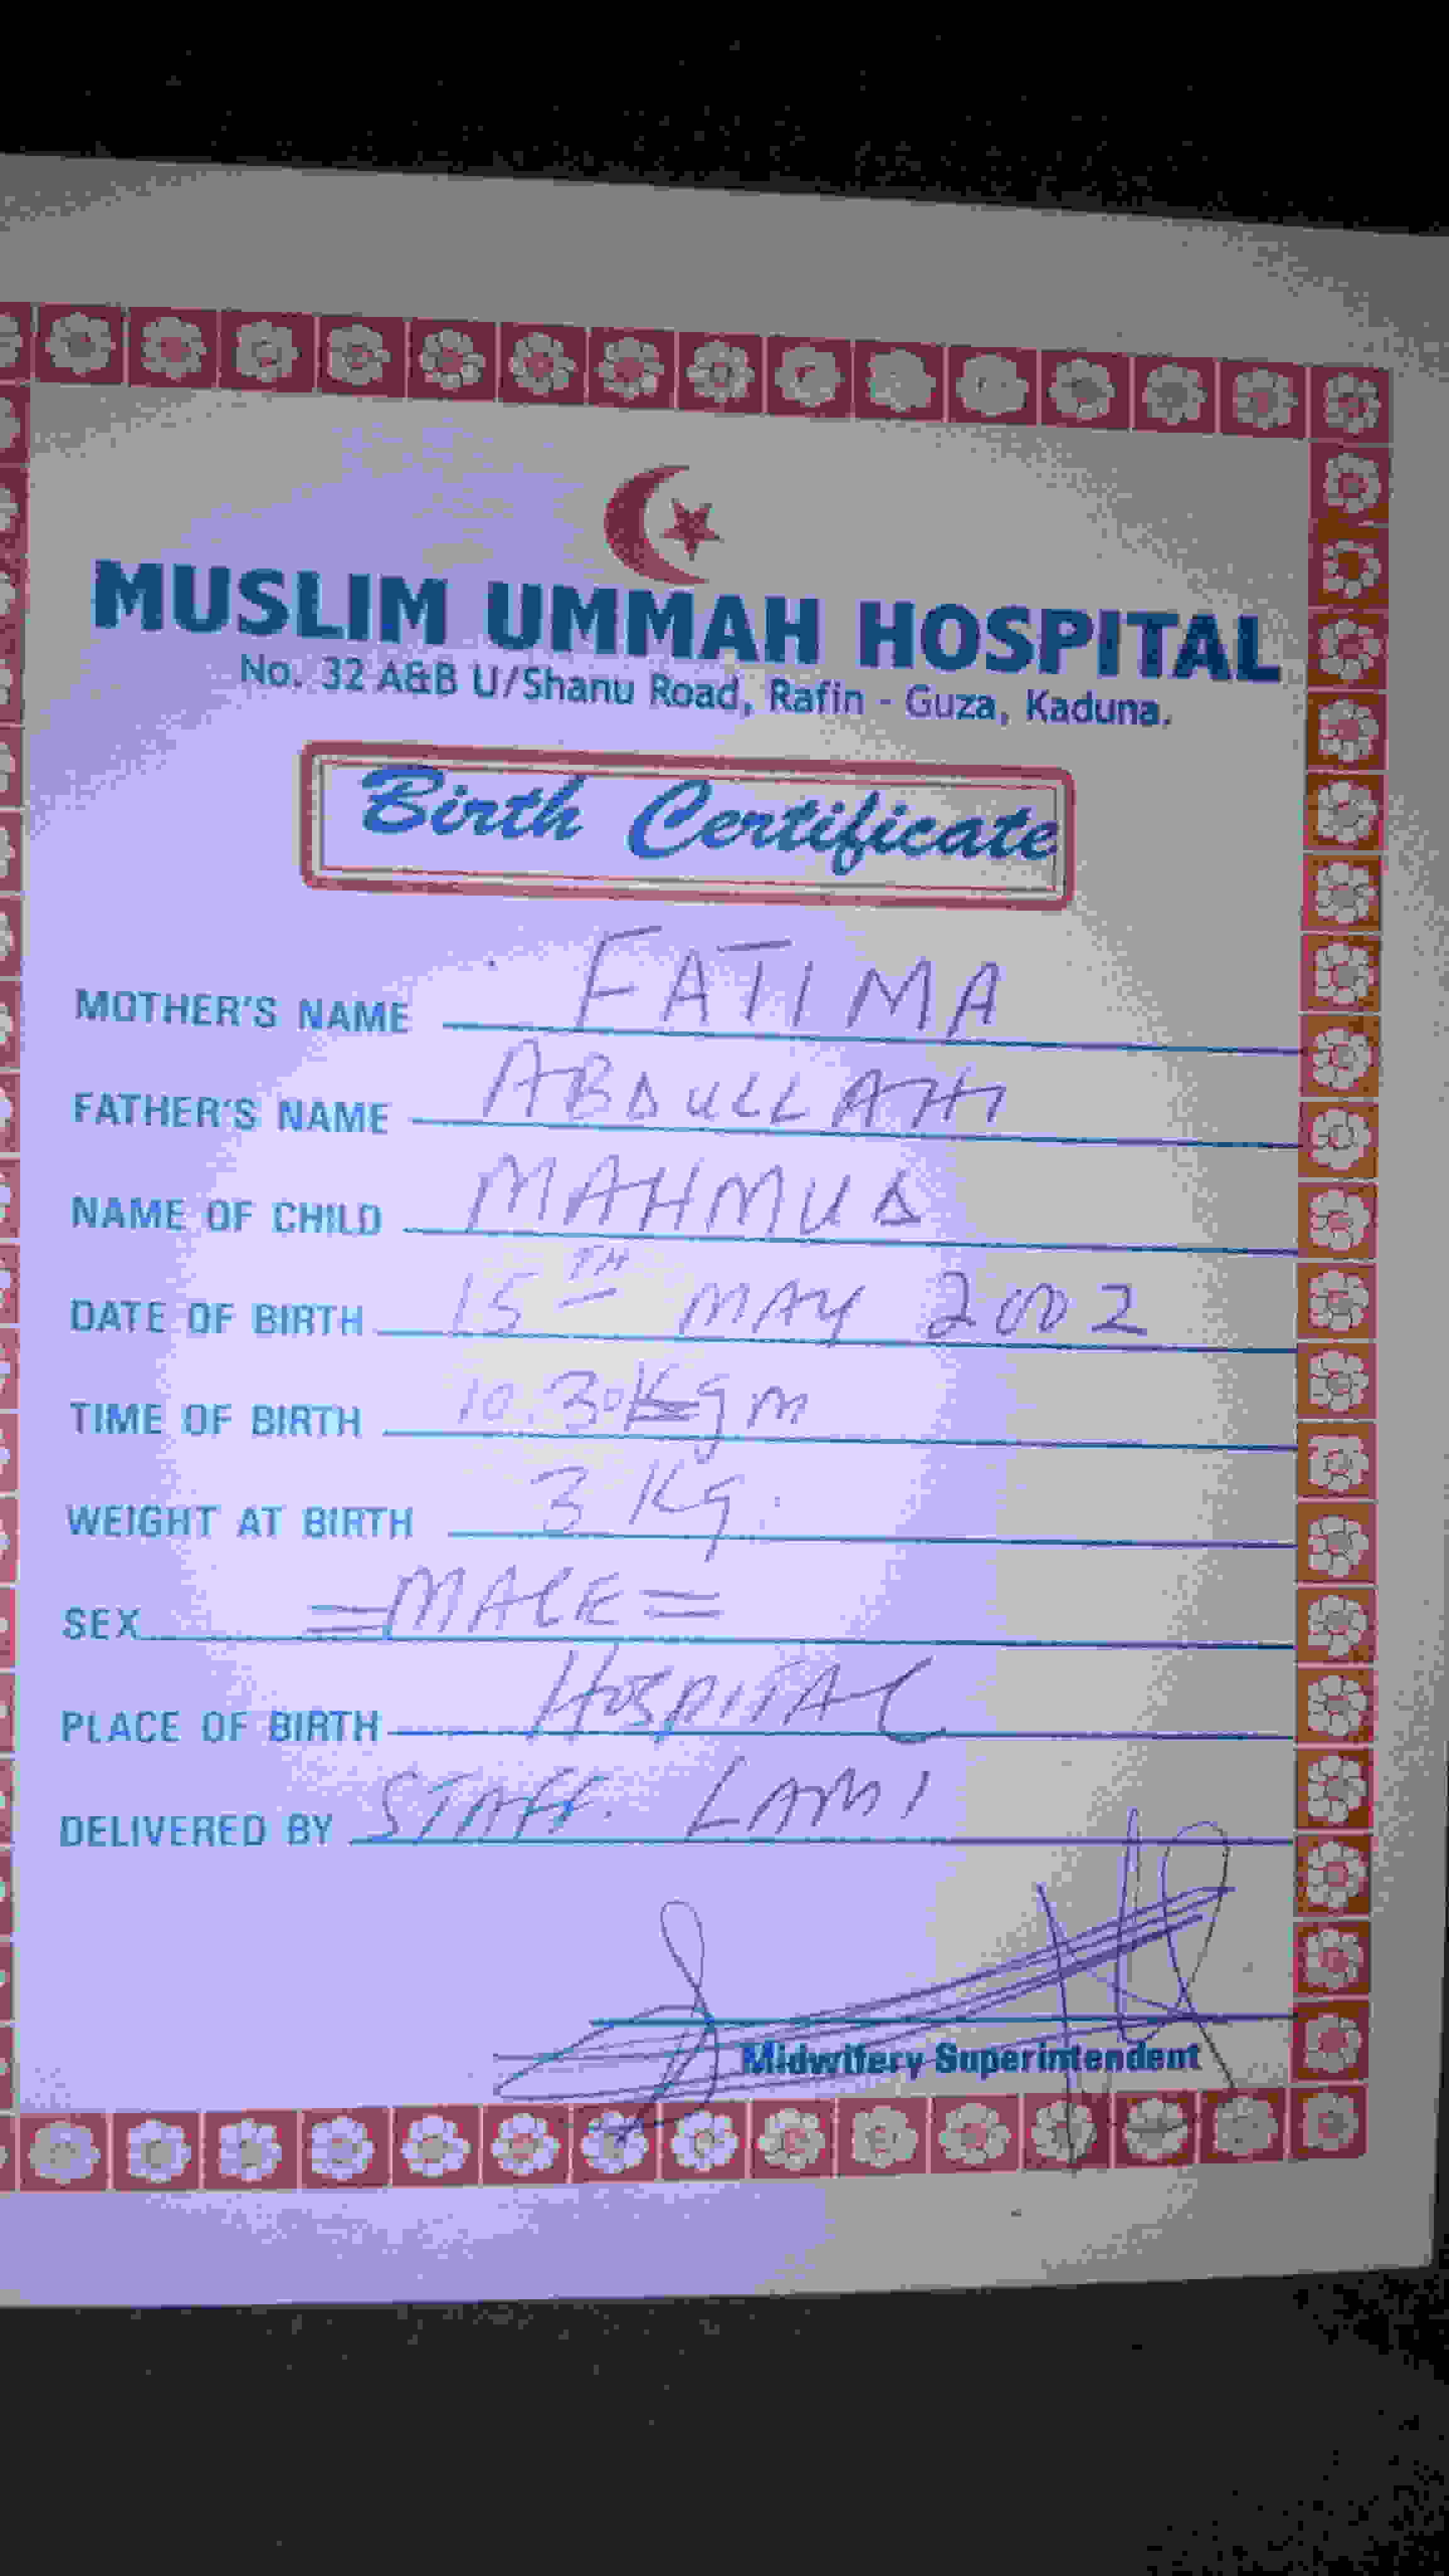 MUSLIM UMMAH HOSPITAL
No. 32 A&B U/Shanu Road, Rafin - Guza, Kaduna.
Birth Certificate
MOTHER'S NAME FATIMA
FATHER'S NAME ABDULLAHI
NAME OF CHILD MAHMUD
DATE OF BIRTH 15TH MAY 2002
TIME OF BIRTH 10.30
WEIGHT AT BIRTH 3 Kg.
SEX =MALE=
PLACE OF BIRTH HOSPITAL
DELIVERED BY STAFF. LAMI
Midwifery Superintendent